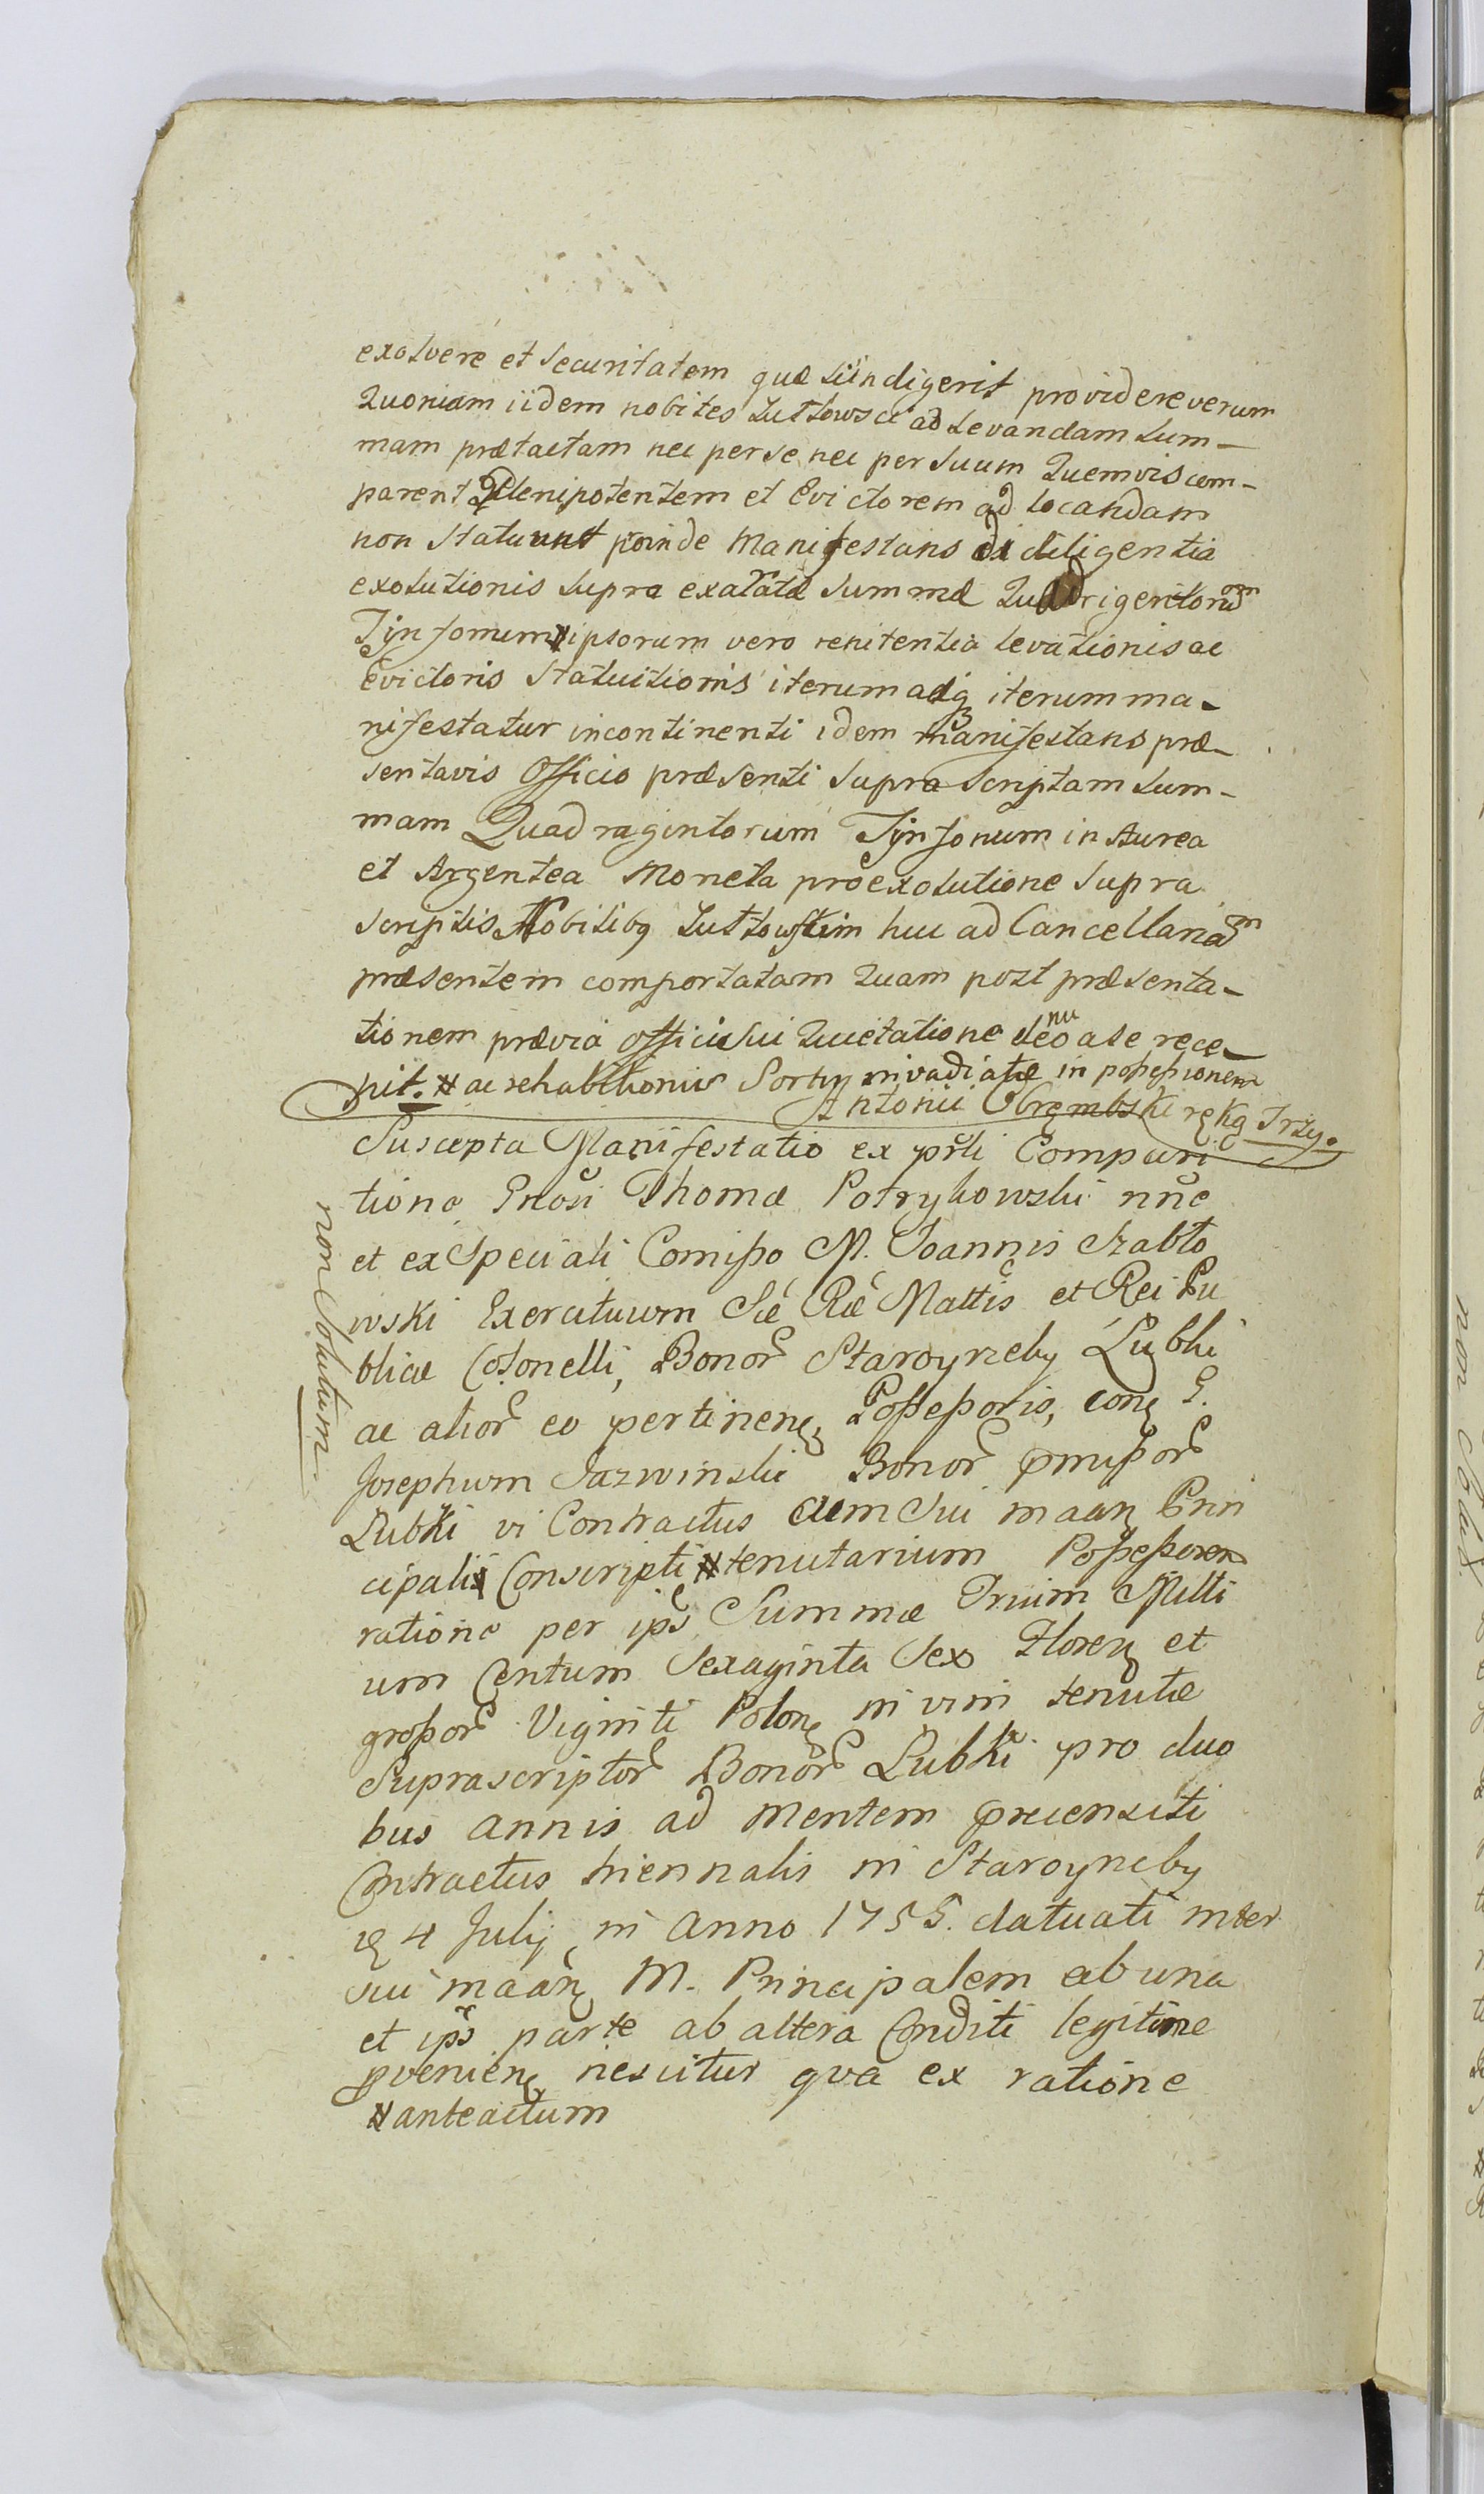 exolvere et Securitatem quæ Siindigerit providere verum
Quoniam iidem nobiles Lutłowscii ad Levandam Sum-
mam prætactam nec per se nec per Suum Quemvis com-
parent Plenipotentem et Evictorem ad locandam
non Statuunt proinde Manifestans de diligentia
exolutionis Supra exaratæ Summæ Quadrigentorum
Tynfonum ipsorum vero renitentia levationis ac
Evictoris Statuitionis iterum adq iterum ma-
nifestatur incontinenti idem manifestans præ-
sentavis Officio præsenti Supra Scriptam Sum-
mam Quadragintorum Tynfonum in Aurea
et Argentea Moneta pro exolutione Supra
Scriptis Nobilibq Lutłowskim huc ad Cancellariam
præsentem comportatam Quam post præsenta-
tionem prævia officii Sui Quietatione denuo a se rece-
pit. # ac rehabitionis Sortis invadiatæ in possessionem
Antonii Obrembski ręką Trzy.
Suscepta Manifestatio ex prsti Compari
tione Gnosi Thomæ Potrykowski nne
et ex Speciali Comisso M. Joannis Szabło
wski Exercituum Sæ Ræ Mattis et Rei Pu
blicæ Colonelli, Bonor Staroyrzeby Lubki
ac alior eo pertinen, Possessoris, con G.
Josephum Jazwinski Bonor pmissor
Lubki vi Contractus cum Sui maan Prin
cipali Conscripti # tenutarium Possessorem
ratione per ips Summæ Trium Milli
um Centum Sexaginta Sex Floren et
grossor Viginti Polon in vim tenutæ
Suprascriptor Bonor Lubki pro duo
bus annis ad mentem precensiti
Contractus triennalis in Staroyrzeby
4 July in Anno 1755. datuati inter
sui maan M. Principalem ab una
et ips parte ab altera Conditi legitime
pvenien nescitur qva ex ratione
# anteactum
non Solutum